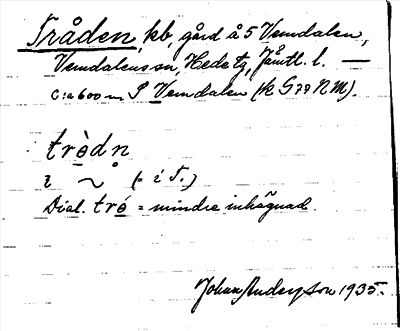 Tråden, kb, gård å 5 Vemdalen,
Vemdalens sn, Hede tg, Jämtl. l. —
c:a 600 m S Vemdalen (k G 77 N M).
trò̱dn
(= i T.)
Dial. tró̱ = mindre inhägnad.
Johan Anderson 1935.